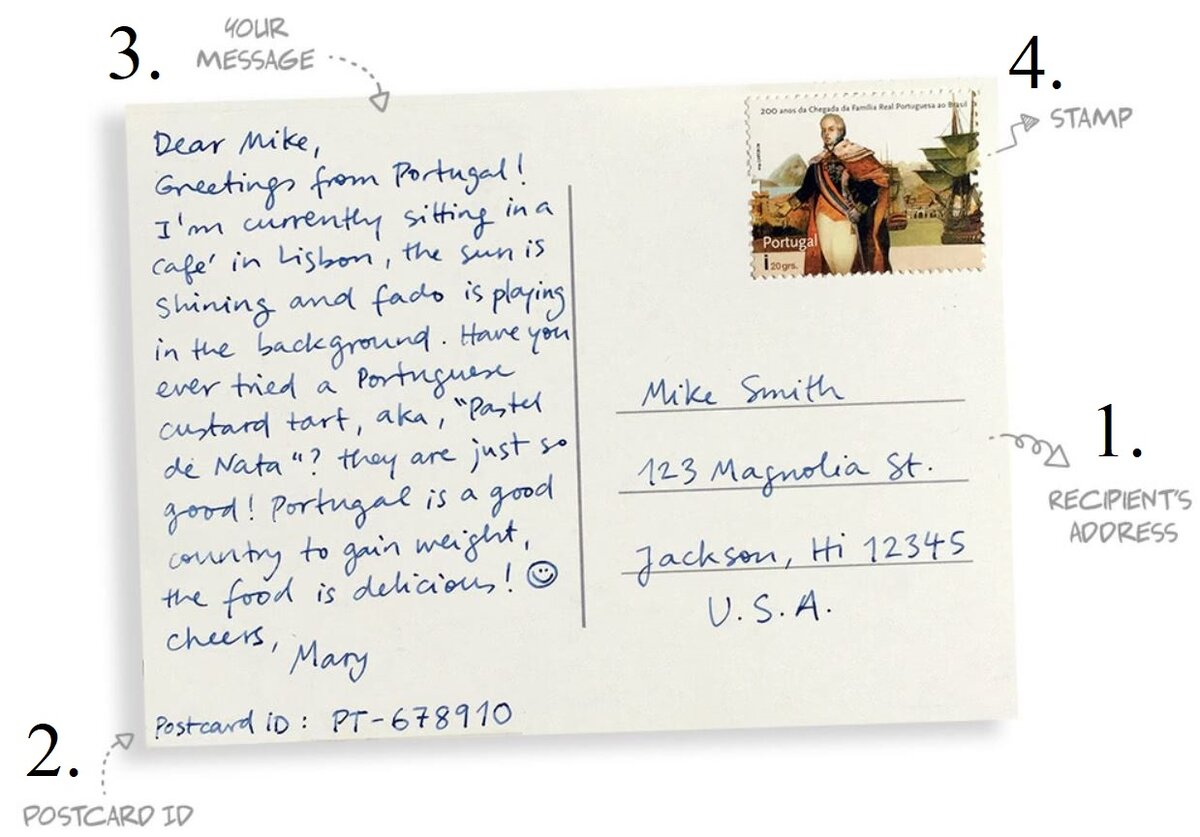 3.
YOUR
MESSAGE
4.
STAMP
200 anos da Chegada da Família Real Portuguesa ao Brasil
Portugal
i 20grs.
Dear Mike,
Greetings from Portugal!
I'm currently sitting in a
café in Lisbon, the sun is
shining and fado is playing
in the background. Have you
ever tried a Portuguese
custard tart, aka, "Pastel
de Nata"? they are just so
good! Portugal is a good
country to gain weight,
the food is delicious! ☺
cheers,
Mary
Postcard iD: PT-678910
Mike Smith
123 Magnolia St.
Jackson, Hi 12345
U.S.A.
1.
RECIPIENT'S
ADDRESS
2.
POSTCARD ID